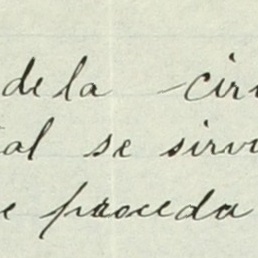 de la cir
al se sirv
e proceda